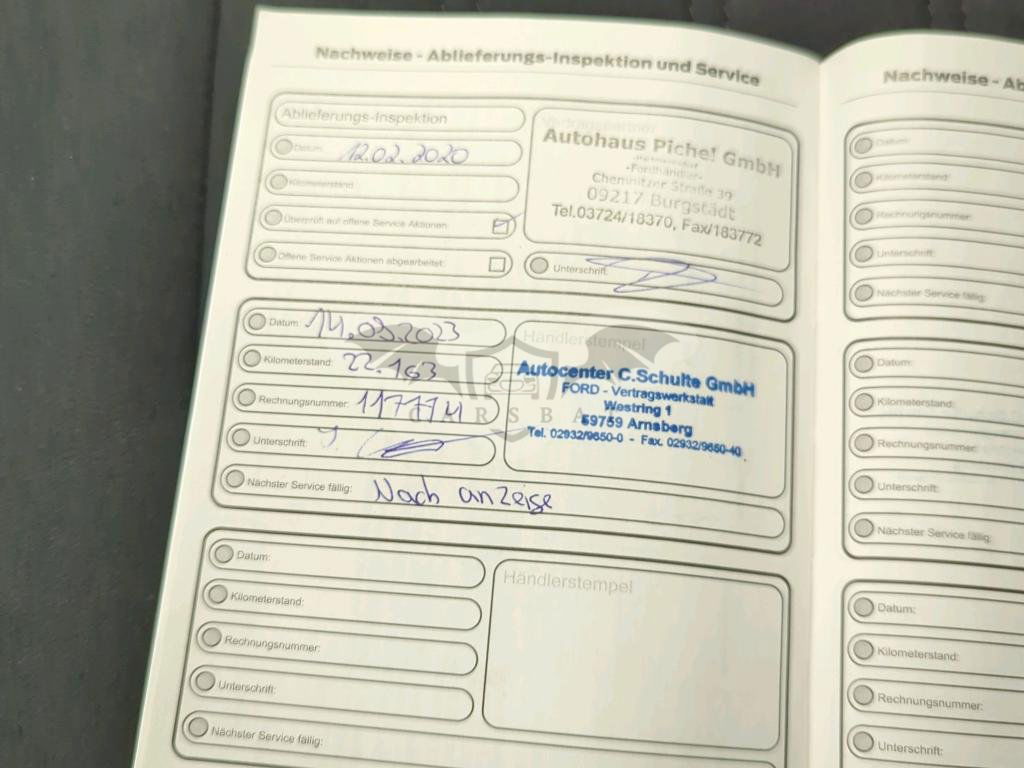 Nachweise - Ablieferungs-Inspektion und Service
Ablieferungs-Inspektion
Datum: 12.02.2020
Kilometerstand:
Überprüft auf offene Service Aktionen:
Offene Service Aktionen abgearbeitet:
Vertragspartner
Autohaus Pichel GmbH
-Fordhändler-
Chemnitzer Straße 39
09217 Burgstädt
Tel.03724/18370, Fax/183772
Unterschrift:
Datum: 14.03.2023
Kilometerstand: 22.163
Rechnungsnummer:
Unterschrift:
Nächster Service fällig: Nach anzeige
Händlerstempel
Autocenter C.Schulte GmbH
FORD - Vertragswerkstatt
Westring 1
59759 Arnsberg
Tel. 02932/9650-0 - Fax. 02932/9650-40
CARSBA
Datum:
Kilometerstand:
Rechnungsnummer:
Unterschrift:
Nächster Service fällig:
Händlerstempel
Nachweise - Ab
Datum:
Kilometerstand:
Rechnungsnummer:
Unterschrift:
Nächster Service fällig:
Datum:
Kilometerstand:
Rechnungsnummer:
Unterschrift:
Nächster Service fällig:
Datum:
Kilometerstand:
Rechnungsnummer:
Unterschrift: